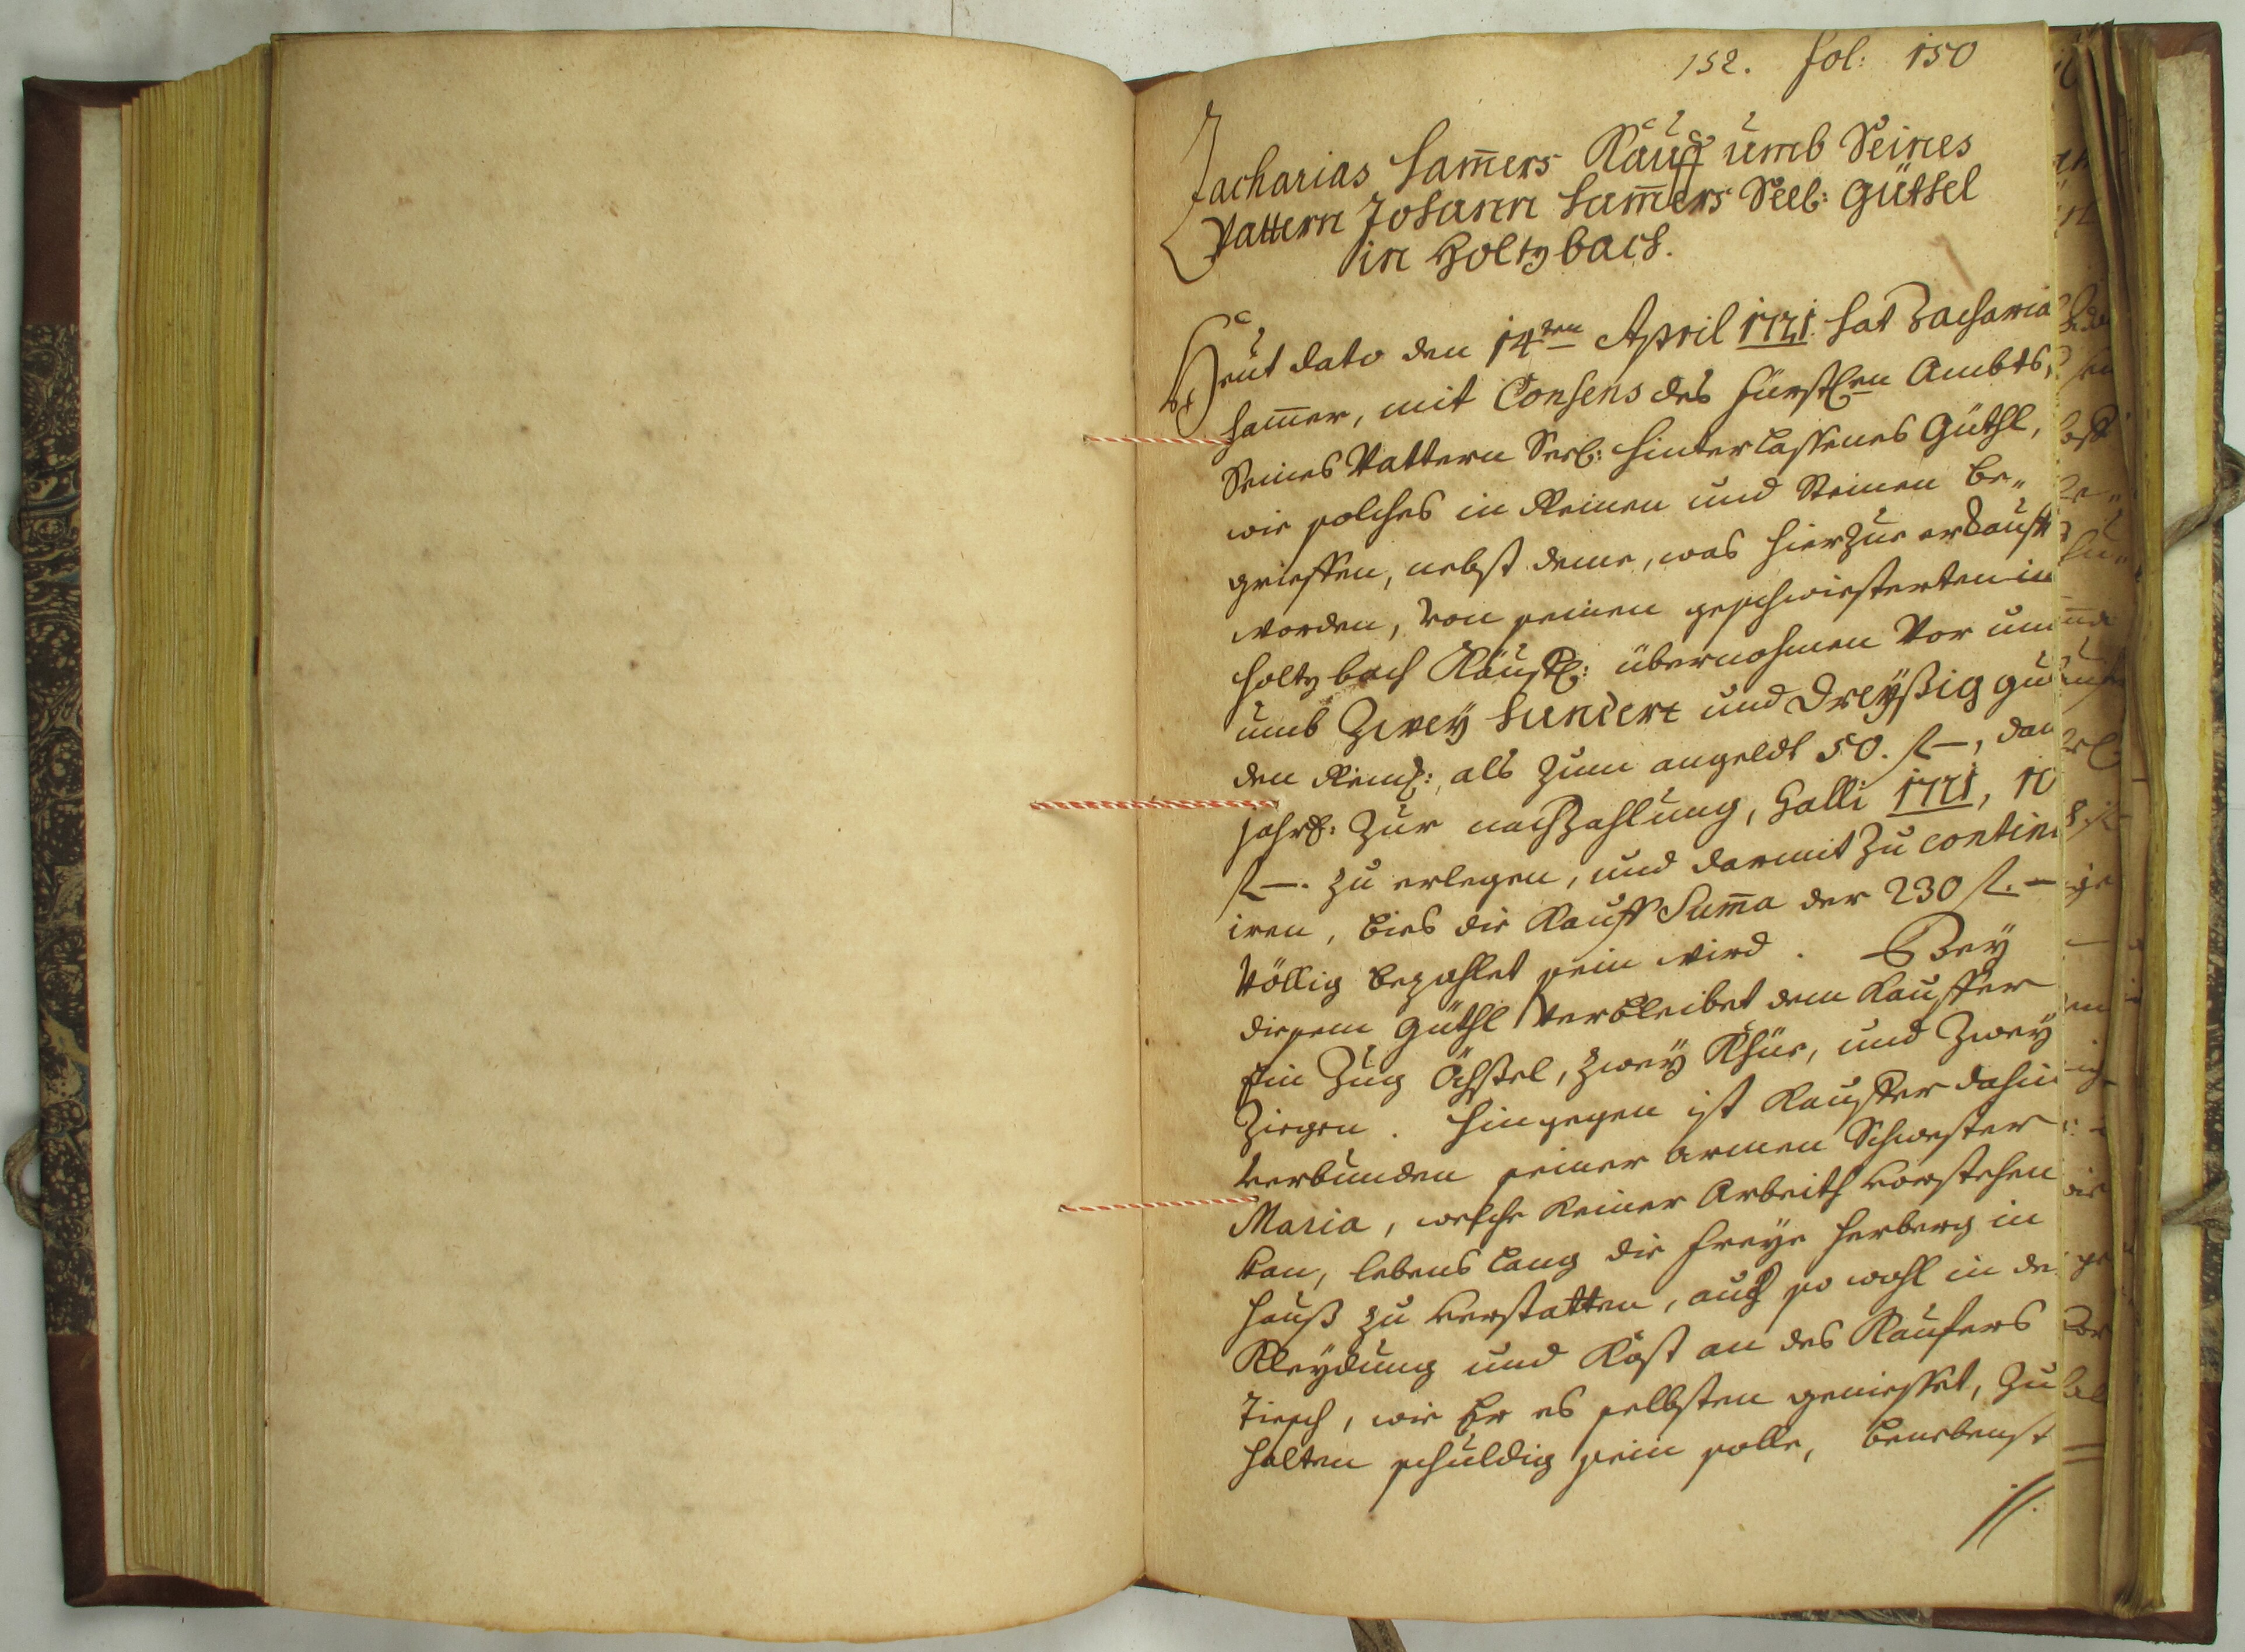 152. fol: 150
Zacharias Ham̅ers Kauff umb Seines
Vattern Johann Ham̅ers Seel: Güthel
in Holtzbach.
Heut dato den 14ten April 1721 hat Zacharia
Ham̅er, mit Consens des Fürstlen Ambts,
Seines Vattern Seel: hinterlassenes Güthl,
wie solches in Reinen und Steinen be„
grieffen, nebst deme, was hierzue erkaufft
worden, von seinen geschwiesterten in
Holtzbach Käuffl: übernohmen vor und
umb Zwey hundert und Dreyßig gul
den Reinl:, als zum angeldt 50. f —, dan
jährl: zur nachzahlung, Galli 1721, 10
f —. zu erlegen, und darmit zu continu
iren, bies die Kauff Sum̅a der 230 f. —
völlig bezahlet sein wird. Bey
diesem Güthl verbleibet dem Kauffer
Ein Zug Öchstel, zwey Khüe, und Zwey
Ziegen. Hingegen ist Kauffer dahin
verbunden seiner armen Schwester
Maria, welche keiner Arbeith vorstehen
kan, lebens lang die freye Herberg in
Hauß zu verstatten, auch so wohl in de
Kleydung und Kost an des Kaufers
Tiesch, wie Er es selbsten geniesset, zu
halten schuldig sein solle, benebenst